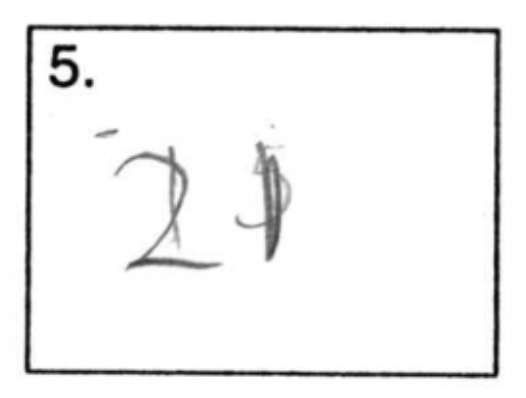 5.
21